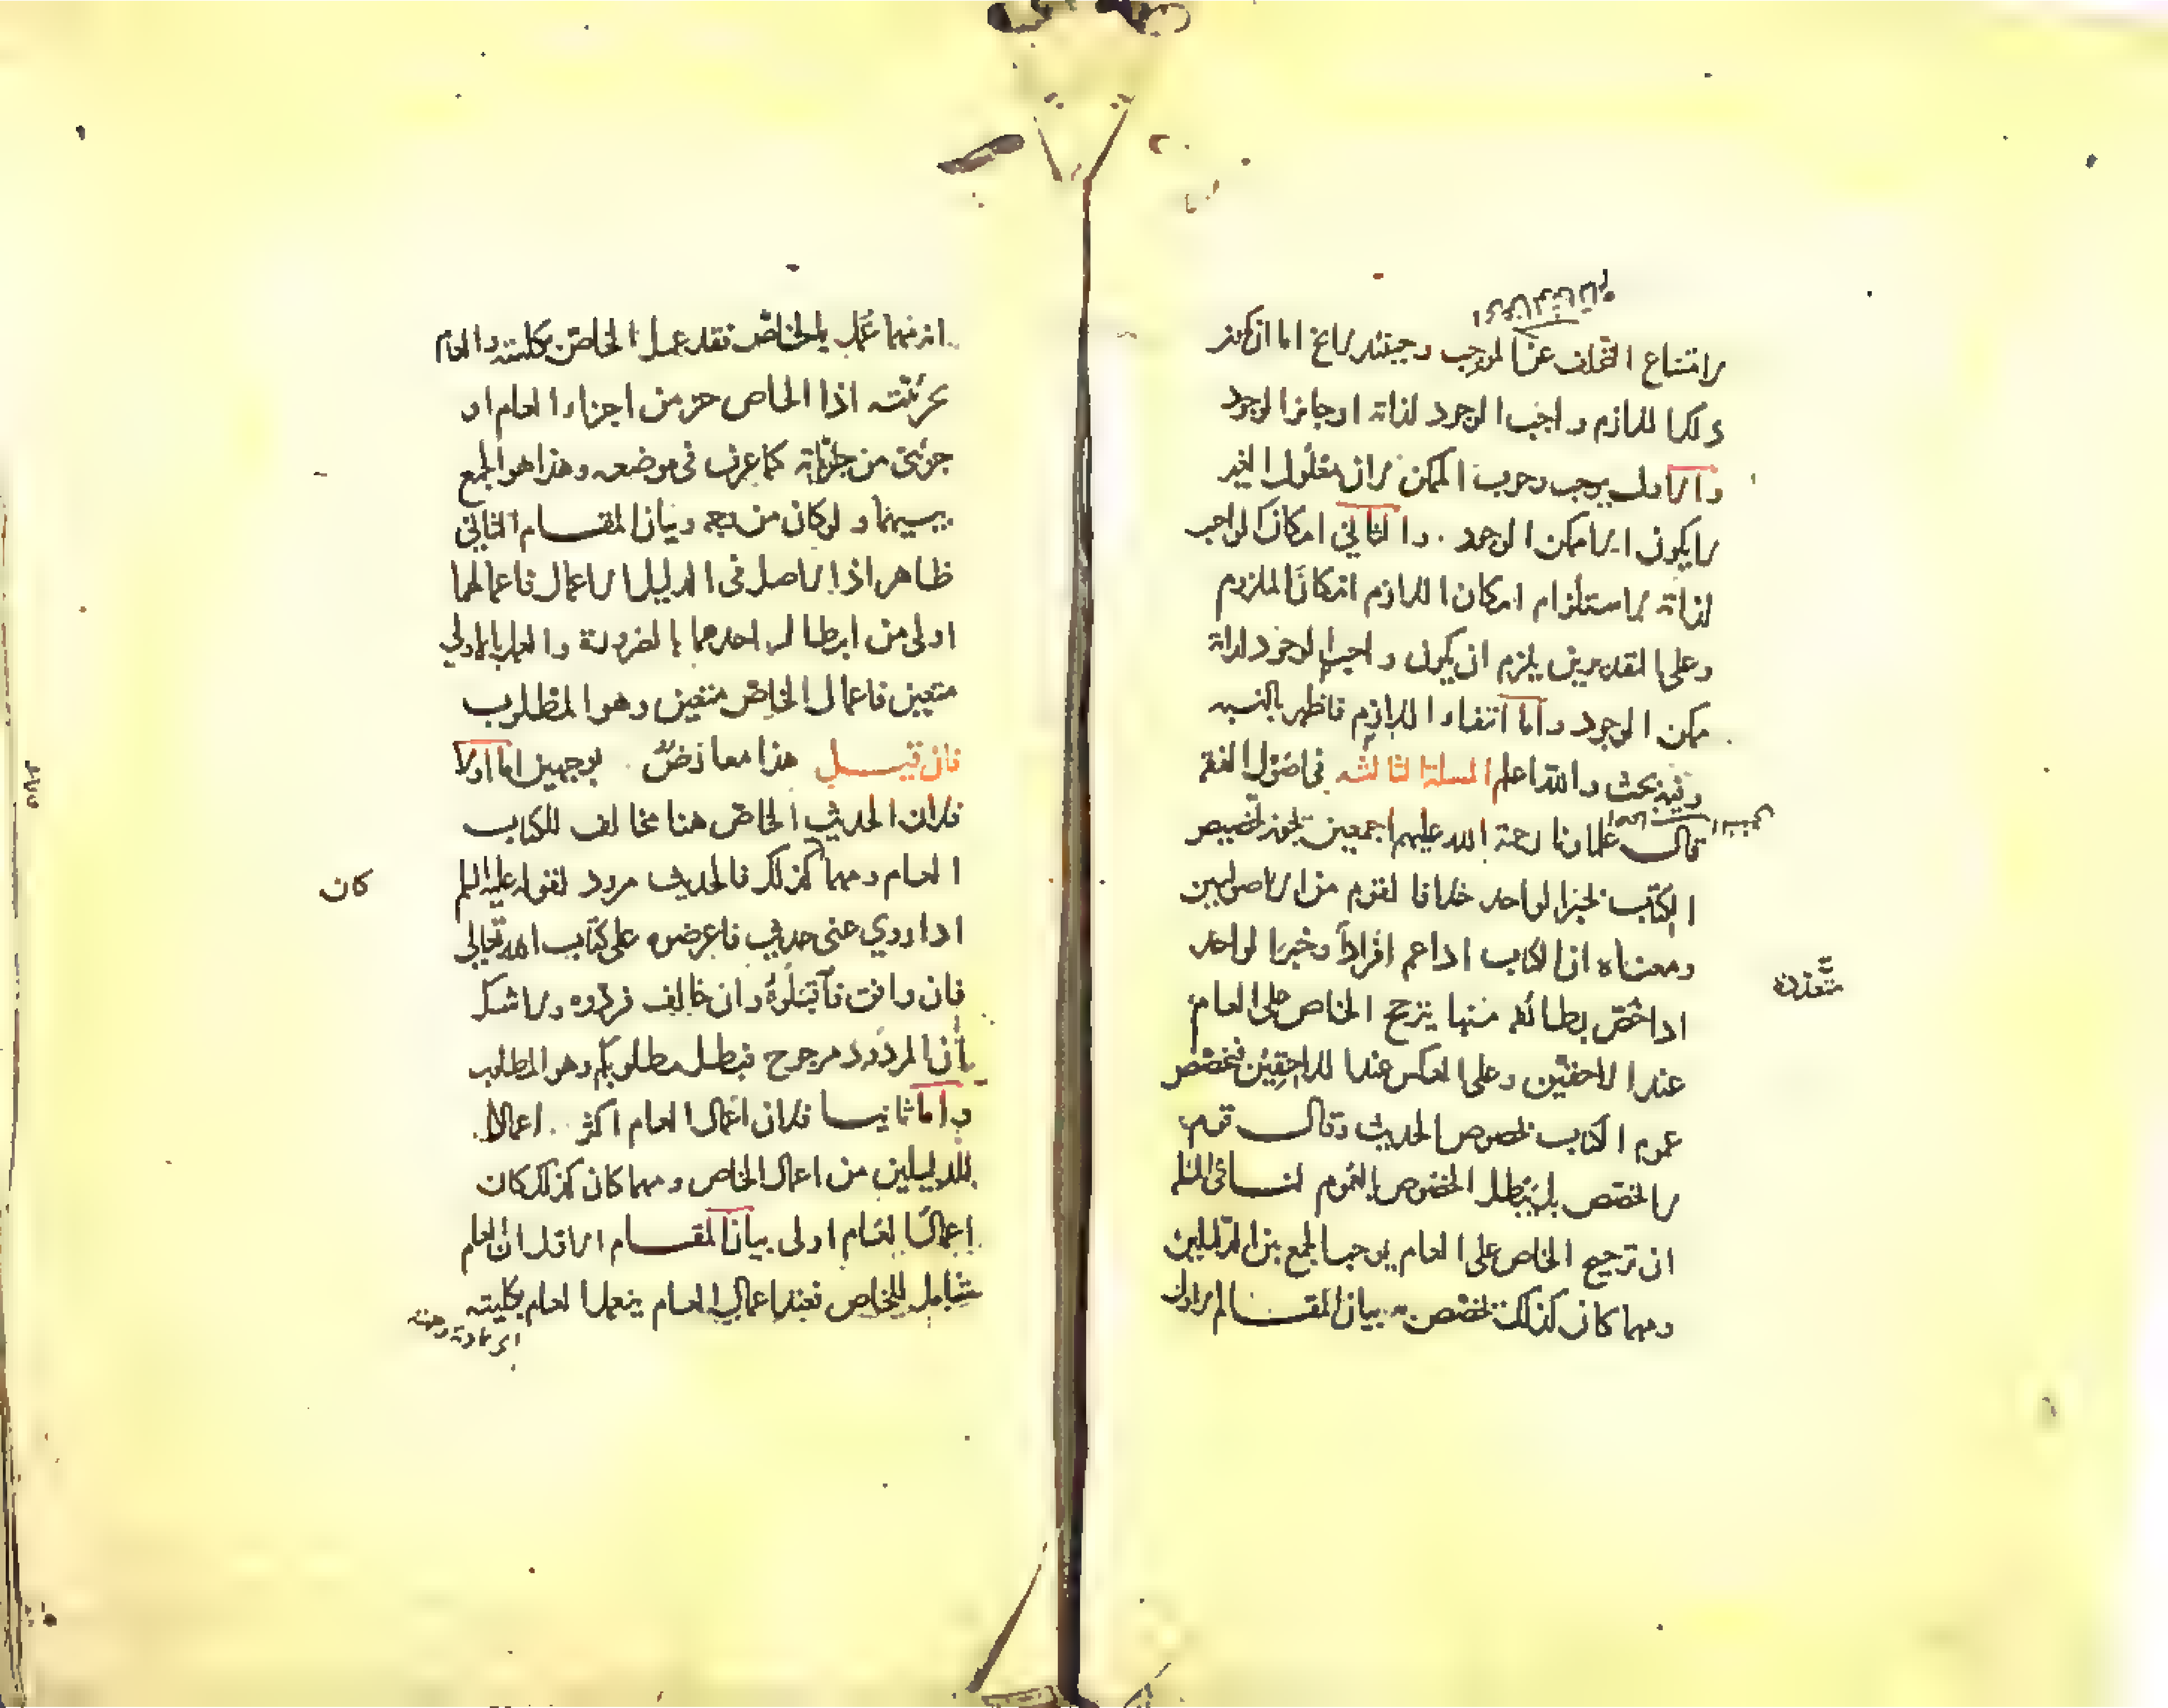 لامتناع التخلف عن الموجب وحينئذ لا يخ اما ان يكون
ذلك اللازم واجب الوجود لذاته او جايز الوجود
والاول يوجب وجوب الممكن لان معلول الغير
لا يكون الا ممكن الوجود . والثاني امكان الواجب
لذاته لاستلزام امكان اللازم امكان الملزوم
وعلى التقديرين يلزم ان يكون واجب الوجود لذاته
ممكن الوجود واما انتفاء اللازم فاظهر بالنسبه
وفيه بحث والله اعلم المسلة الثالثه في اصول الفقه
قال علماؤنا رحمة الله عليهم اجمعين يجوز تخصيص
الكتاب بخبر الواحد خلافا لقوم من الاصوليين
ومعناه ان الكتاب اذا عم افرادا وخبر الواحد
اذا خص بطائفه منها يترجح الخاص على العام
متعددة
عند اللاحقين وعلى العكس عند اللاحقين فخصص
عموم الكتاب بخصوص الحديث وقال قوم
لا يخصص بل يبطل الخصوص بالعموم لنا في المسلة
ان ترجيح الخاص على العام يوجب الجمع بين الدليلين
ومهما كان كذلك تخصص به بيان المقام الاول
انه مهما عمل بالخاص فقد عمل الخاص بكليته والعام
بجزئيته اذ الخاص جزء من اجزاء العام او
جزئي من جزئياته كما عرف في موضعه وهذا هو الجمع
بينهما ولو كان من وجه وبيان المقام الثاني
ظاهر اذ الاصل في الدليل الاعمال فاعمالهما
اولى من ابطال احدهما بالضرورة والعمل بالاولى
متعين فاعمال الخاص متعين وهو المطلوب
فان قيل هذا معارض بوجهين اما اولا
فلان الحديث الخاص هنا مخالف للكتاب
العام ومهما كذلك فالحديث مردود لقوله عليه السلم
كان
اذا روي عني حديث فاعرضوه على كتاب الله تعالى
فان وافق فاقبلوه وان خالف فردوه ولا شك
بأن المردود مرجوح فبطل مطلوبكم وهو المطلوب
واما ثانيا فلان اعمال العام اكثر . اعمالا
للدليلين من اعمال الخاص ومهما كان كذلك كان
اعمال العام اولى بيان المقام الاول ان العام
شامل للخاص فعند اعمال العام يعمل العام بكليته